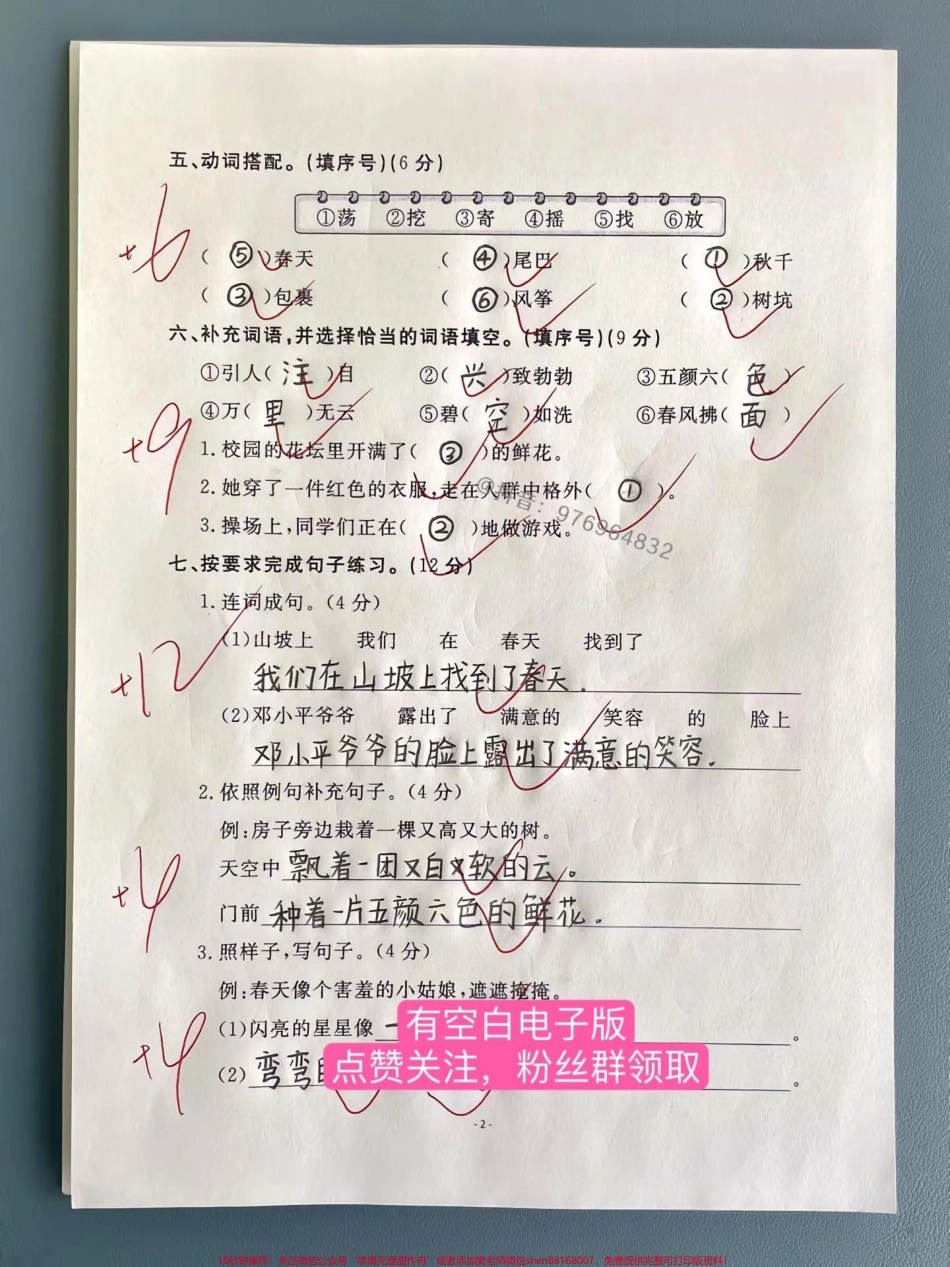 五、动词搭配。(填序号)(6分)
①荡 ②挖 ③寄 ④摇 ⑤找 ⑥放
+6
( ⑤ )春天 ( ④ )尾巴 ( ① )秋千
( ③ )包裹 ( ⑥ )风筝 ( ② )树坑
六、补充词语,并选择恰当的词语填空。(填序号)(9分)
①引人( 注 )目 ②( 兴 )致勃勃 ③五颜六( 色 )
④万( 里 )无云 ⑤碧( 空 )如洗 ⑥春风拂( 面 )
+9
1.校园的花坛里开满了( ③ )的鲜花。
2.她穿了一件红色的衣服,走在人群中格外( ① )。
@抖音：976964832
3.操场上,同学们正在( ② )地做游戏。
七、按要求完成句子练习。(12分)
1.连词成句。(4分)
(1)山坡上 我们 在 春天 找到了
+12
我们在山坡上找到了春天.
(2)邓小平爷爷 露出了 满意的 笑容 的 脸上
邓小平爷爷的脸上露出了满意的笑容.
2.依照例句补充句子。(4分)
例:房子旁边栽着一棵又高又大的树。
+4
天空中飘着一团又白又软的云。
门前种着一片五颜六色的鲜花.
3.照样子,写句子。(4分)
例:春天像个害羞的小姑娘,遮遮掩掩。
+4
(1)闪亮的星星像一 。
有空白电子版
点赞关注，粉丝群领取
(2)弯弯 。
-2-
10秒钟操作！关注微信公众号“学海无涯甜作舟”或者添加樊老师微信shen88168007，免费提供完整可打印版资料！